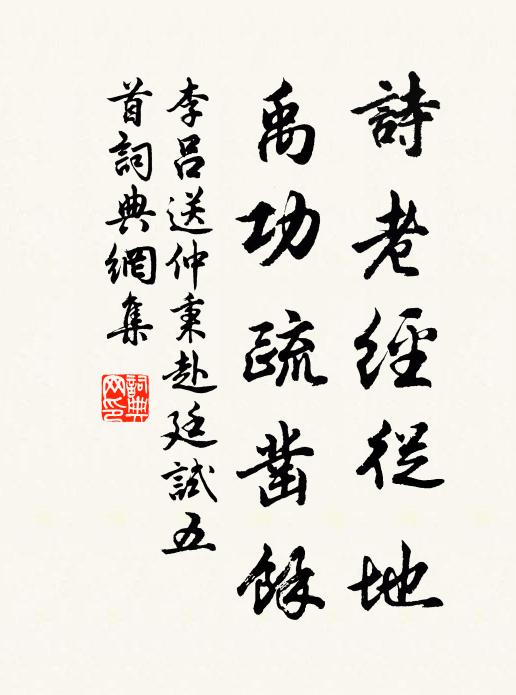 詩老經從地
禹功疏鑿餘
李呂送仲秉赴廷試五
首詞典網集
詞典
网印